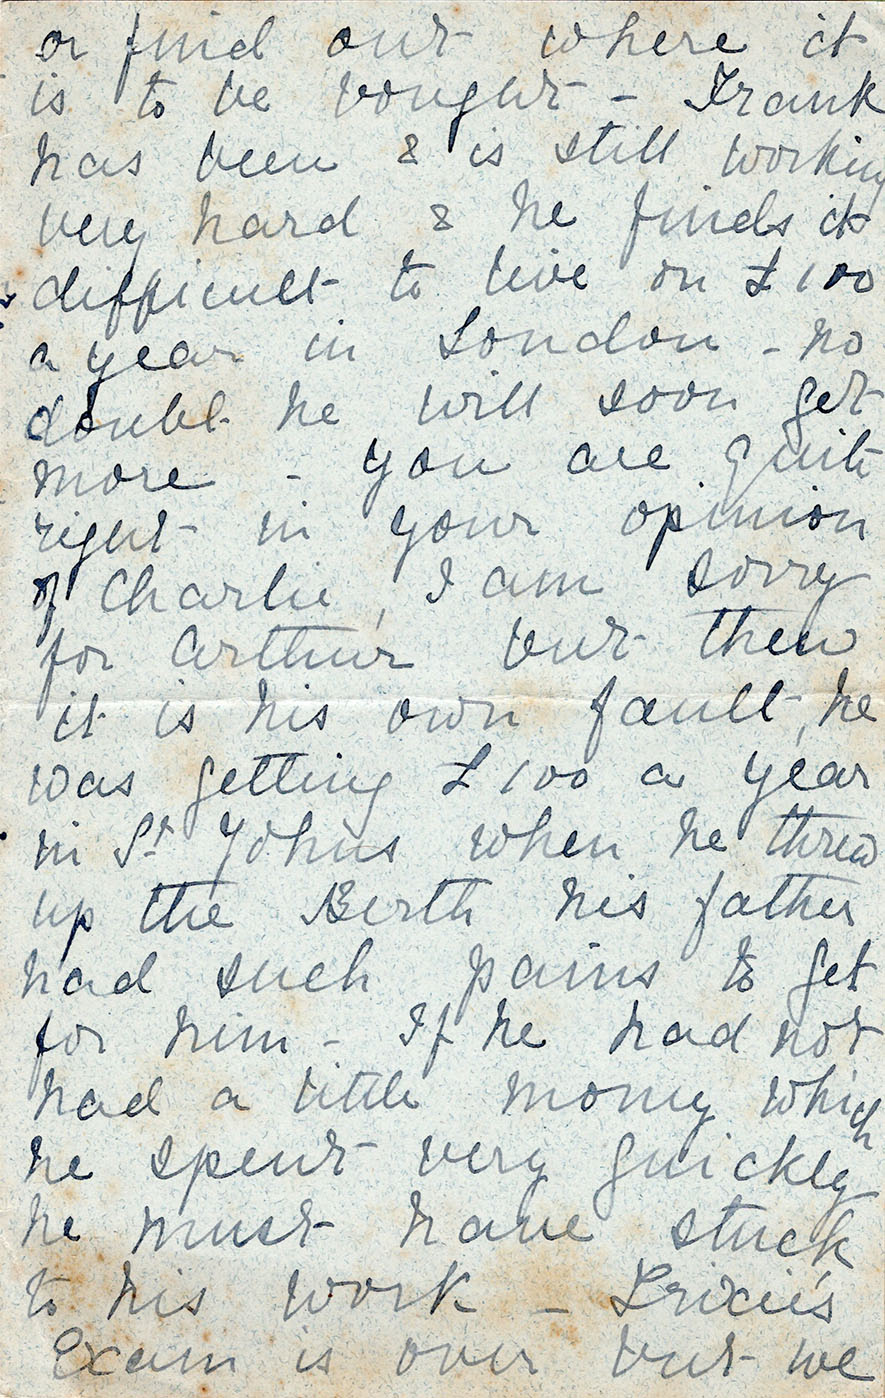 or find out where it
is to be bought - Frank
has been & is still working
very hard & he finds it
difficult to live on £100
a year in London - no
doubt he will soon get
more - you are quite
right in your opinion
of Charlie, I am sorry
for Arthur but then
it is his own fault, he
was getting £100 a year
in St. Johns when he threw
up the Berth his father
had such pains to get
for him - If he had not
had a little money which
he spent very quickly
he must have stuck
to his work - Trixie's
Exam is over but we